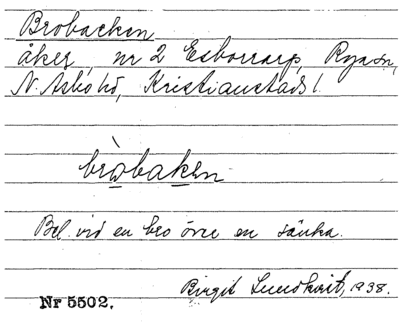 Brobacken
åker, nr 2 Esborrarp, Ryssn,
N. Åsbo hd, Kristianstads l.
bròbakɘn
Bel. vid en bro över en sänka.
Birgit Lundkvist, 1938.
Nr 5502.